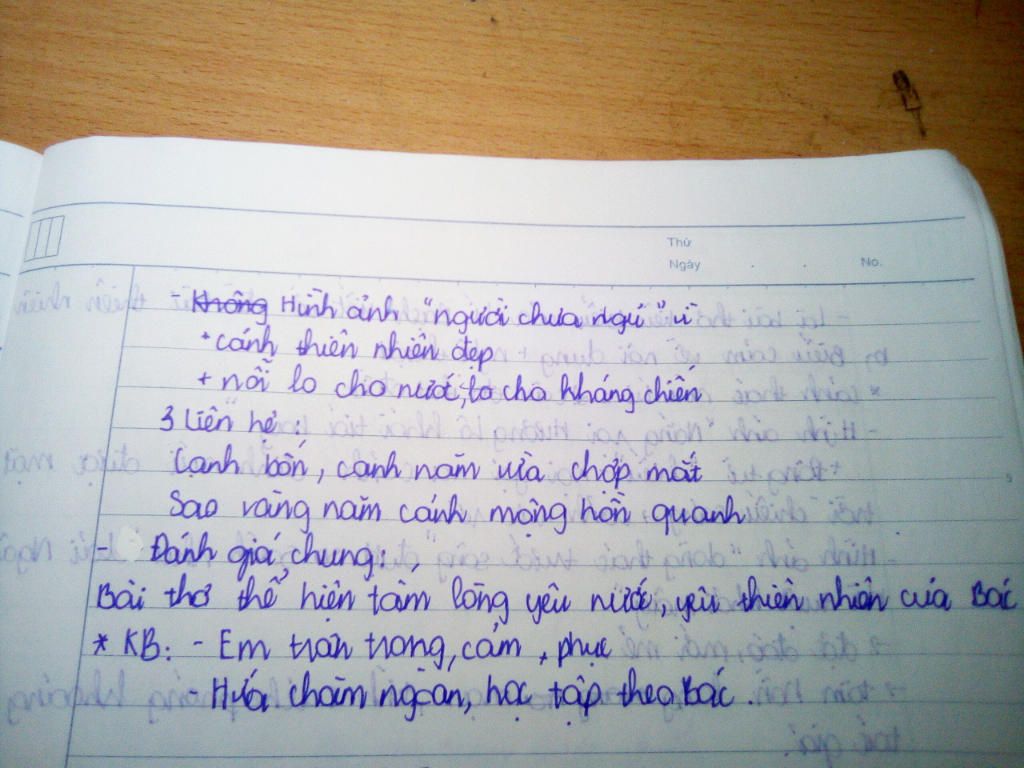 Thứ
Ngày . . No.
- Không Hình ảnh "người chưa ngủ"
+ cảnh thiên nhiên đẹp
+ nỗi lo cho nước, lo cho kháng chiến
3 Liên hệ:
Canh bốn, canh năm vừa chợp mắt
Sao vàng năm cánh mộng hồn quanh
- Đánh giá chung:
Bài thơ thể hiện tấm lòng yêu nước, yêu thiên nhiên của Bác
* KB: - Em trân trọng, cảm phục
- Hứa chăm ngoan, học tập theo Bác.